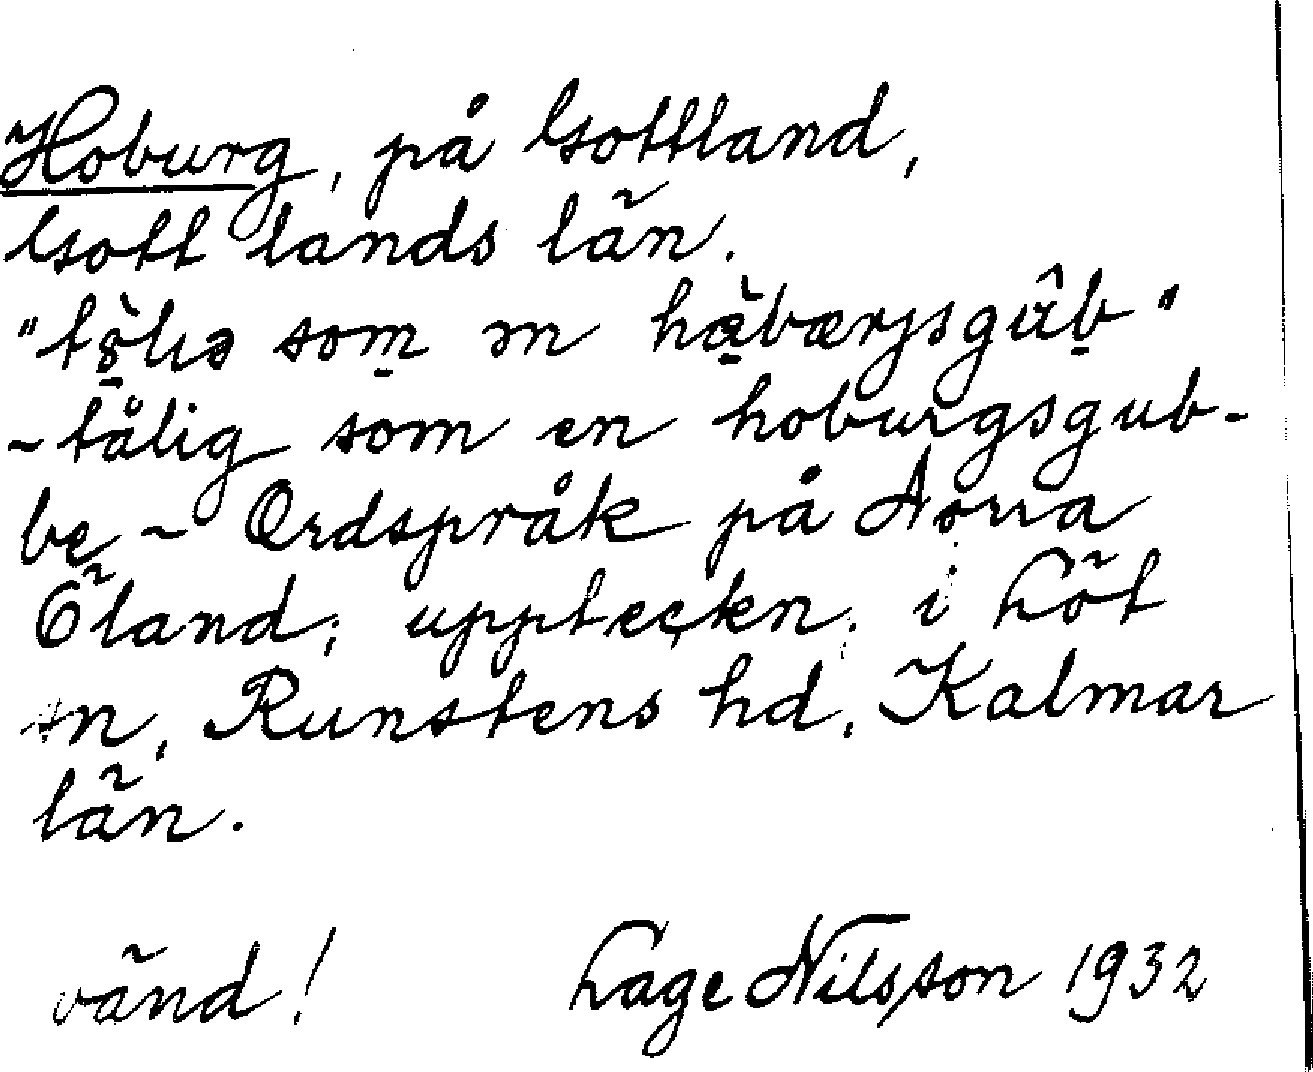 Hoburg, på Gottland,
Gottlands län.
som hàbærjsgûb"
~ tålig som en hoburgsgub-
be ~ Ordspråk på Norra
Öland, uppteckn. i Löt
sn, Runstens hd, Kalmar
län.
vänd! Lage Nilsson 1932